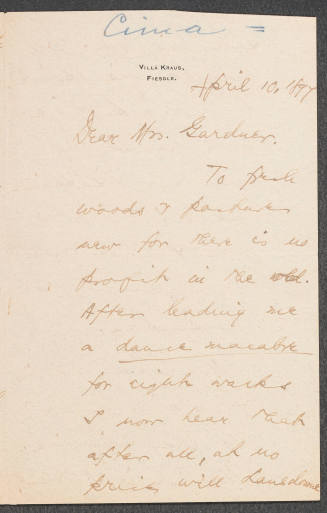 Cima =
VILLA KRAUS,
FIESOLE.
April 10, 1897
Dear Mrs. Gardner.
To fresh
woods & pastures
new for there is no
profit in the old.
After leading me
a dance macabre
for eight weeks
I now hear that
after all, at no
price will Lansdowne